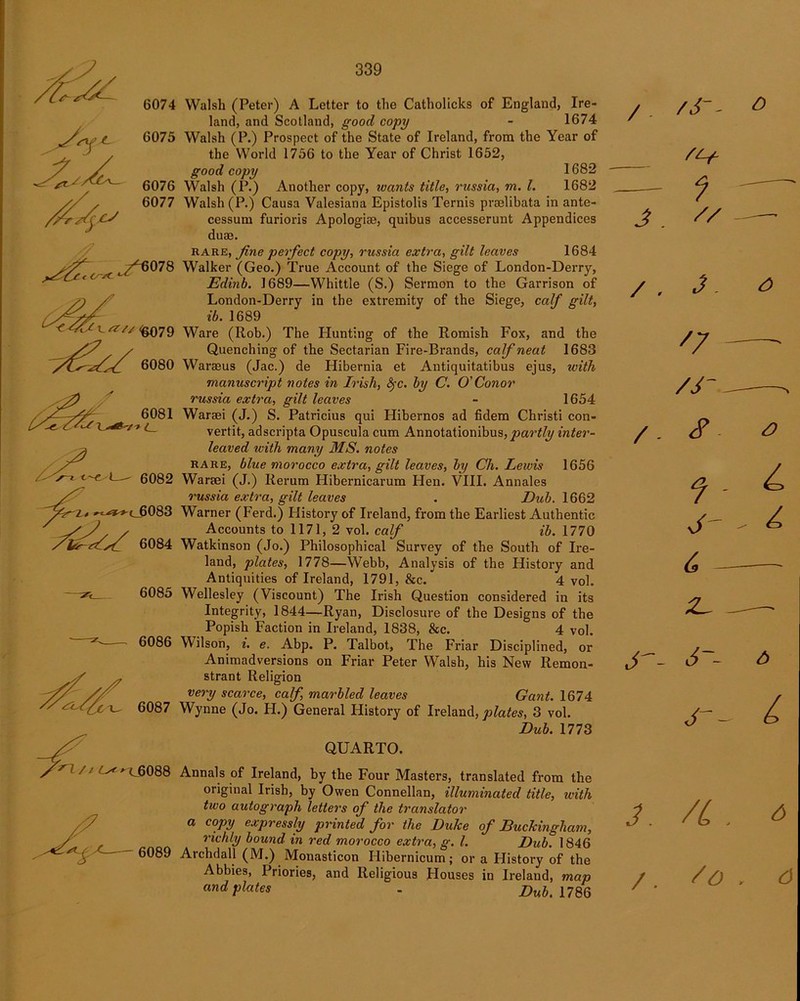 339
6074 Walsh (Peter) A Letter to the Catholicks of England, Ire-
land, and Scotland, good copy - 1674
1 . 15 - 0
6075 Walsh (P.) Prospect of the State of Ireland, from the Year of
the World 1756 to the Year of Christ 1652,
good copy 1682
14
6076 Walsh (P.) Another copy, wants title, russia, m. l. 1682
9
6077 Walsh (P.) Causa Valesiana Epistolis Ternis prælibata in ante-
cessum furioris Apologiæ, quibus accesserunt Appendices
duæ.
3 . 11
RARE, fine perfect copy, russia extra, gilt leaves 1684
6078 Walker (Geo.) True Account of the Siege of London-Derry,
Edinb. 1689—Whittle (S.) Sermon to the Garrison of
London-Derry in the extremity of the Siege, calf gilt,
ib. 1689
1 . 3 . 0
6079 Ware (Rob.) The Hunting of the Romish Fox, and the
Quenching of the Sectarian Fire-Brands, calf neat 1683
17
6080 Waræus (Jac.) de Hibernia et Antiquitatibus ejus, with
manuscript notes in Irish, &c. by C. O'Conor
russia extra, gilt leaves - 1654
15
6081 Waræi (J.) S. Patricius qui Hibernos ad fidem Christi con-
vertit, adscripta Opuscula cum Annotationibus, partly inter-
leaved with many MS. notes
RARE, blue morocco extra, gilt leaves, by Ch. Lewis 1656
1 . 8 - 0
6082 Waræi (J.) Rerum Hibernicarum Hen. VIII. Annales
russia extra, gilt leaves . Dub. 1662
9 - 6
6083 Warner (Ferd.) History of Ireland, from the Earliest Authentic
Accounts to 1171, 2 vol. calf ib. 1770
5 - 6
6084 Watkinson (Jo.) Philosophical Survey of the South of Ire-
land, plates, 1778—Webb, Analysis of the History and
Antiquities of Ireland, 1791, &c. 4 vol.
6
6085 Wellesley (Viscount) The Irish Question considered in its
Integrity, 1844—Ryan, Disclosure of the Designs of the
Popish Faction in Ireland, 1838, &c. 4 vol.
2
6086 Wilson, i. e. Abp. P. Talbot, The Friar Disciplined, or
Animadversions on Friar Peter Walsh, his New Remon-
strant Religion
very scarce, calf, marbled leaves Gant. 1674
5 - 5 - 0
6087 Wynne (Jo. H.) General History of Ireland, plates, 3 vol.
Dub. 1773
5 - 6
QUARTO.
6088 Annals of Ireland, by the Four Masters, translated from the
original Irish, by Owen Connellan, illuminated title, with
two autograph letters of the translator
a copy expressly printed for the Duke of Buckingham,
richly bound in red morocco extra, g. l. Dub. 1846
3 . 16 . 0
6089 Archdall (M.) Monasticon Hibernicum; or a History of the
Abbies, Priories, and Religious Houses in Ireland, map
and plates - Dub. 1786
1 . 10 . 0